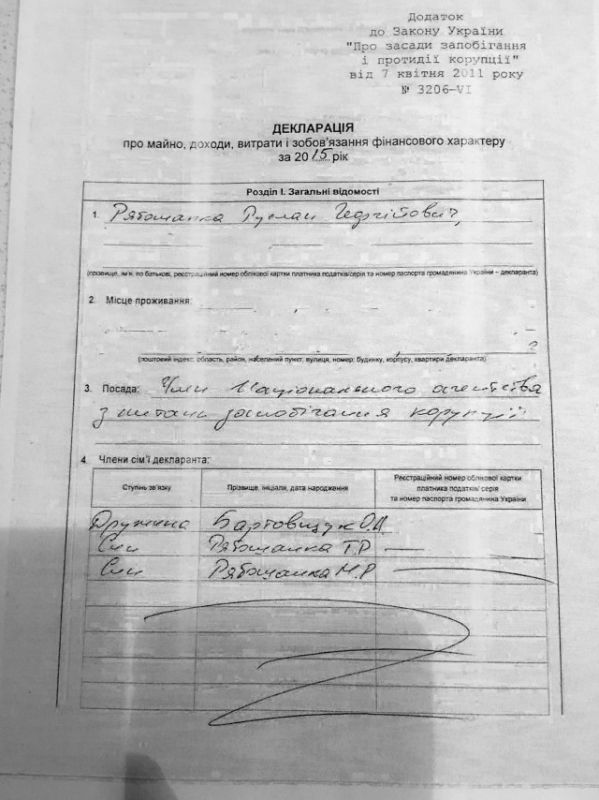 Додаток
до Закону України
"Про засади запобігання
і протидії корупції"
від 7 квітня 2011 року
№ 3206-VI
ДЕКЛАРАЦІЯ
про майно, доходи, витрати і зобов'язання фінансового характеру
за 2015 рік
Розділ І. Загальні відомості
1. Рябошапка Руслан Георгійович,
(прізвище, ім'я, по батькові, реєстраційний номер облікової картки платника податків/серія та номер паспорта громадянина України – декларанта)
2. Місце проживання:
(поштовий індекс, область, район, населений пункт, вулиця, номер: будинку, корпусу, квартири декларанта)
3. Посада: Член Національного агентства
з питань запобігання корупції
4. Члени сім'ї декларанта:
Ступінь зв'язку Прізвище, ініціали, дата народження Реєстраційний номер облікової картки
платника податків/ серія
та номер паспорта громадянина України
Дружина Бартовщук О.А.
Син Рябошапка Т.Р
Син Рябошапка М.Р